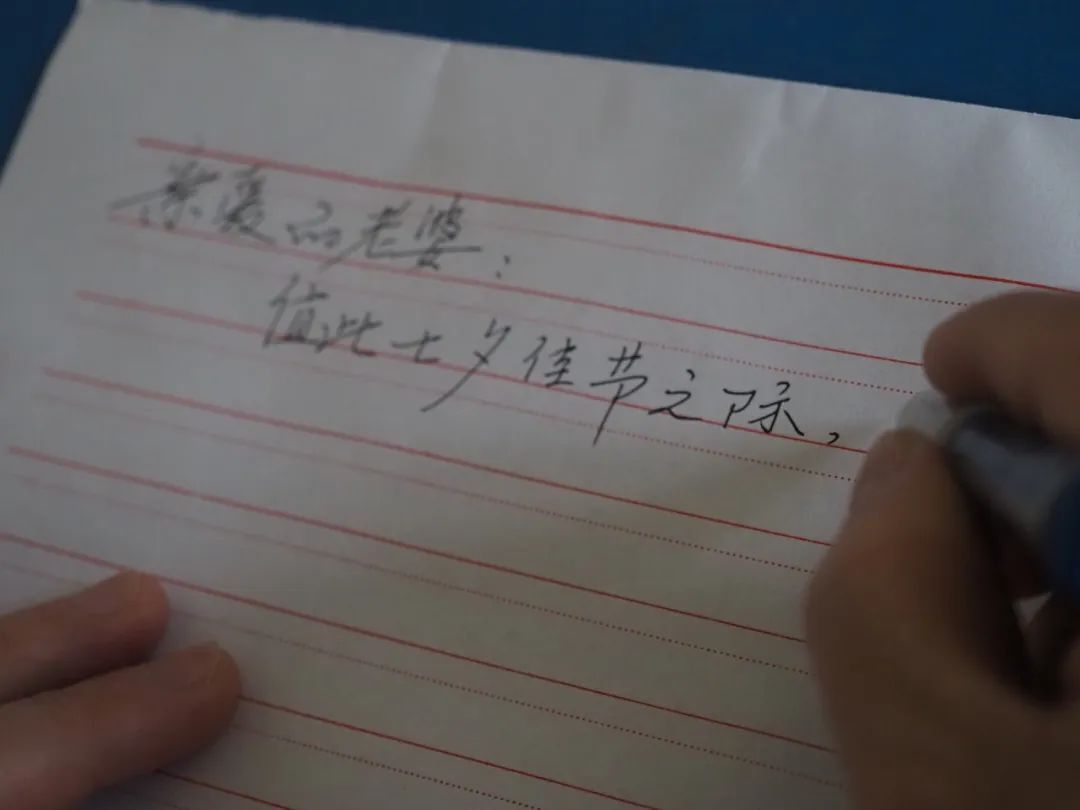 亲爱的老婆：
值此七夕佳节之际，